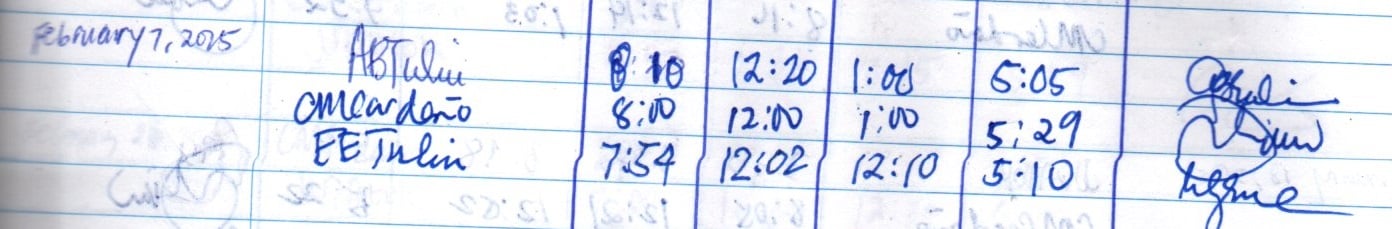 February 7, 2025 ABTulin 8:10 12:20 1:00 5:05
CMCardeño 8:00 12:00 1:00 5:29
EETulin 7:54 12:02 12:10 5:10